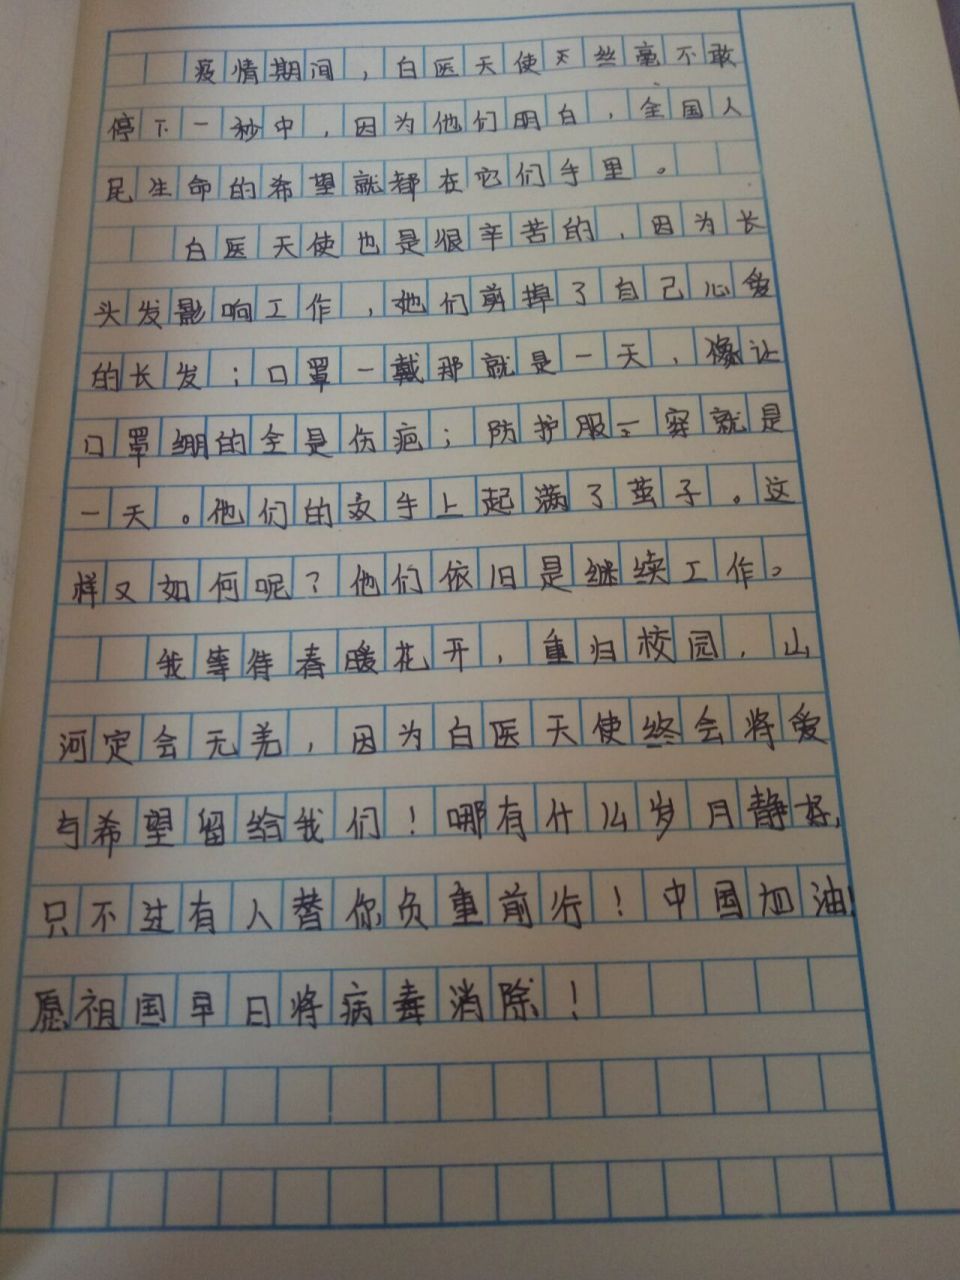 疫情期间，白医天使丝毫不敢
停下一秒中，因为他们明白，全国人
民生命的希望就都在它们手里。
白医天使也是很辛苦的，因为长
头发影响工作，她们剪掉了自己心爱
的长发；口罩一戴那就是一天，像让
口罩绷的全是伤疤；防护服一穿就是
一天。他们的双手上起满了茧子。这
样又如何呢？他们依旧是继续工作。
我等待春暖花开，重归校园，山
河定会无羌，因为白医天使终会将爱
与希望留给我们！哪有什么岁月静好，
只不过有人替你负重前行！中国加油！
愿祖国早日将病毒消除！